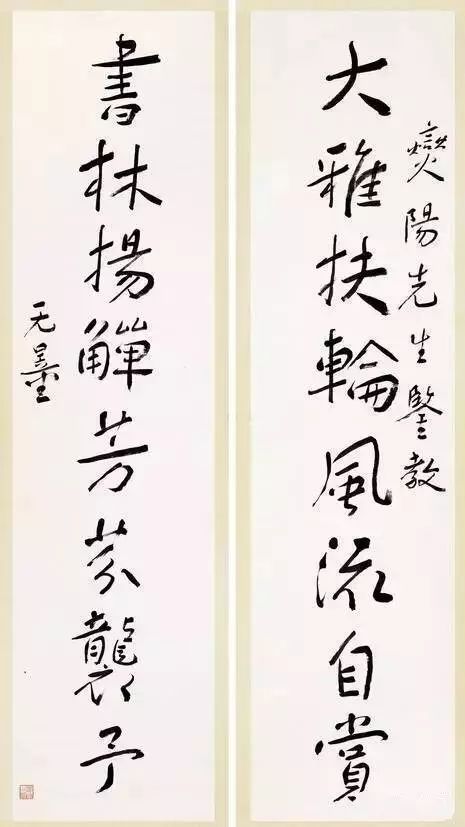 燮陽先生鑒教
大雅扶輪風流自賞
書林揚觶芳芬襲予
无量